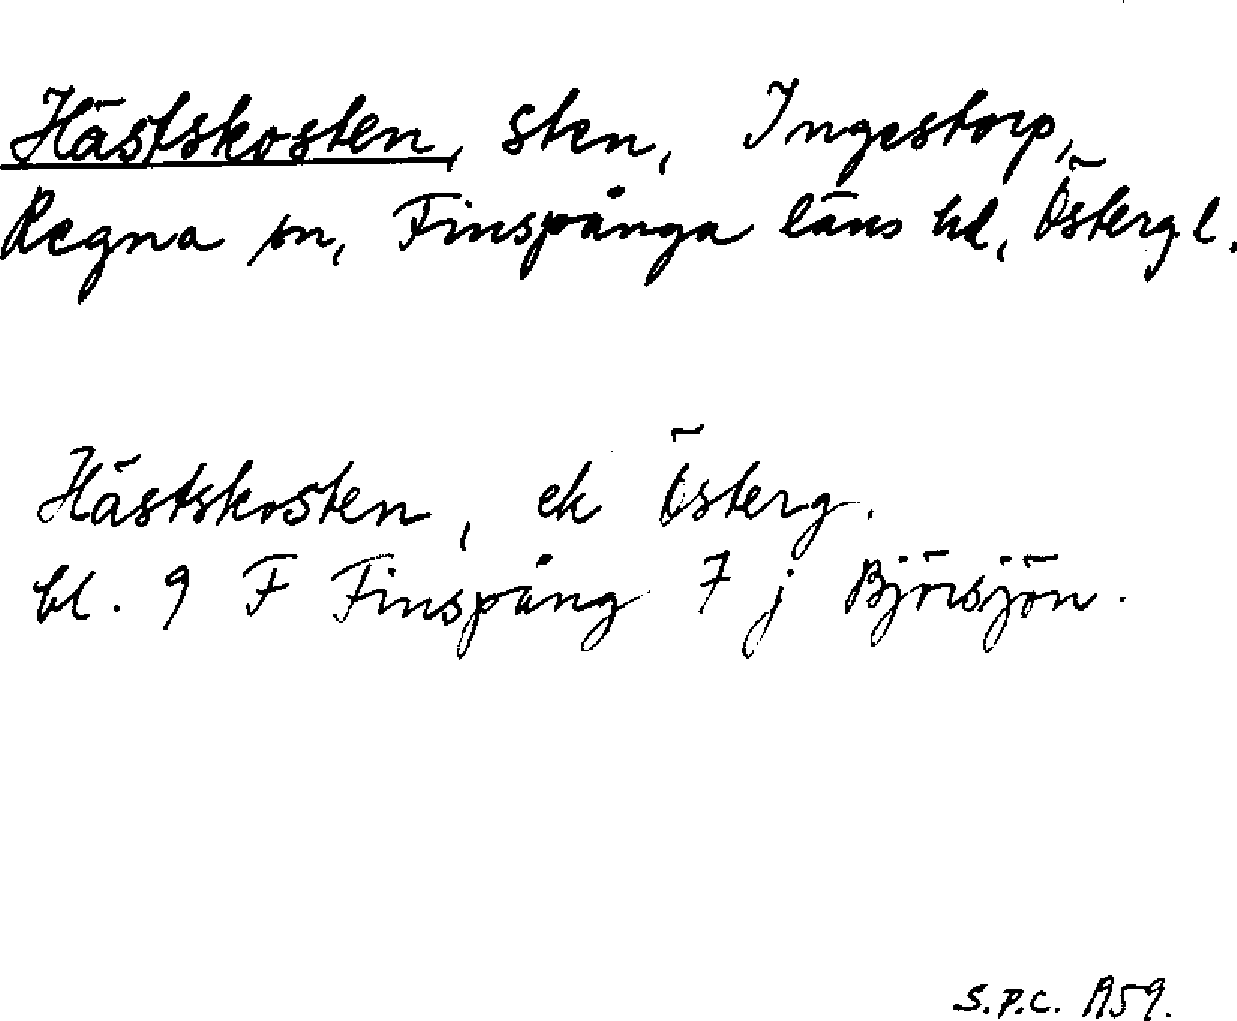 Hästskosten, sten, Ingestorp,
Regna sn, Finspånga läns hd, Östergl.
Hästskosten, ek Österg.
bl. 9 F Finspång 7 j Björsjön.
S.P.C. 1959.